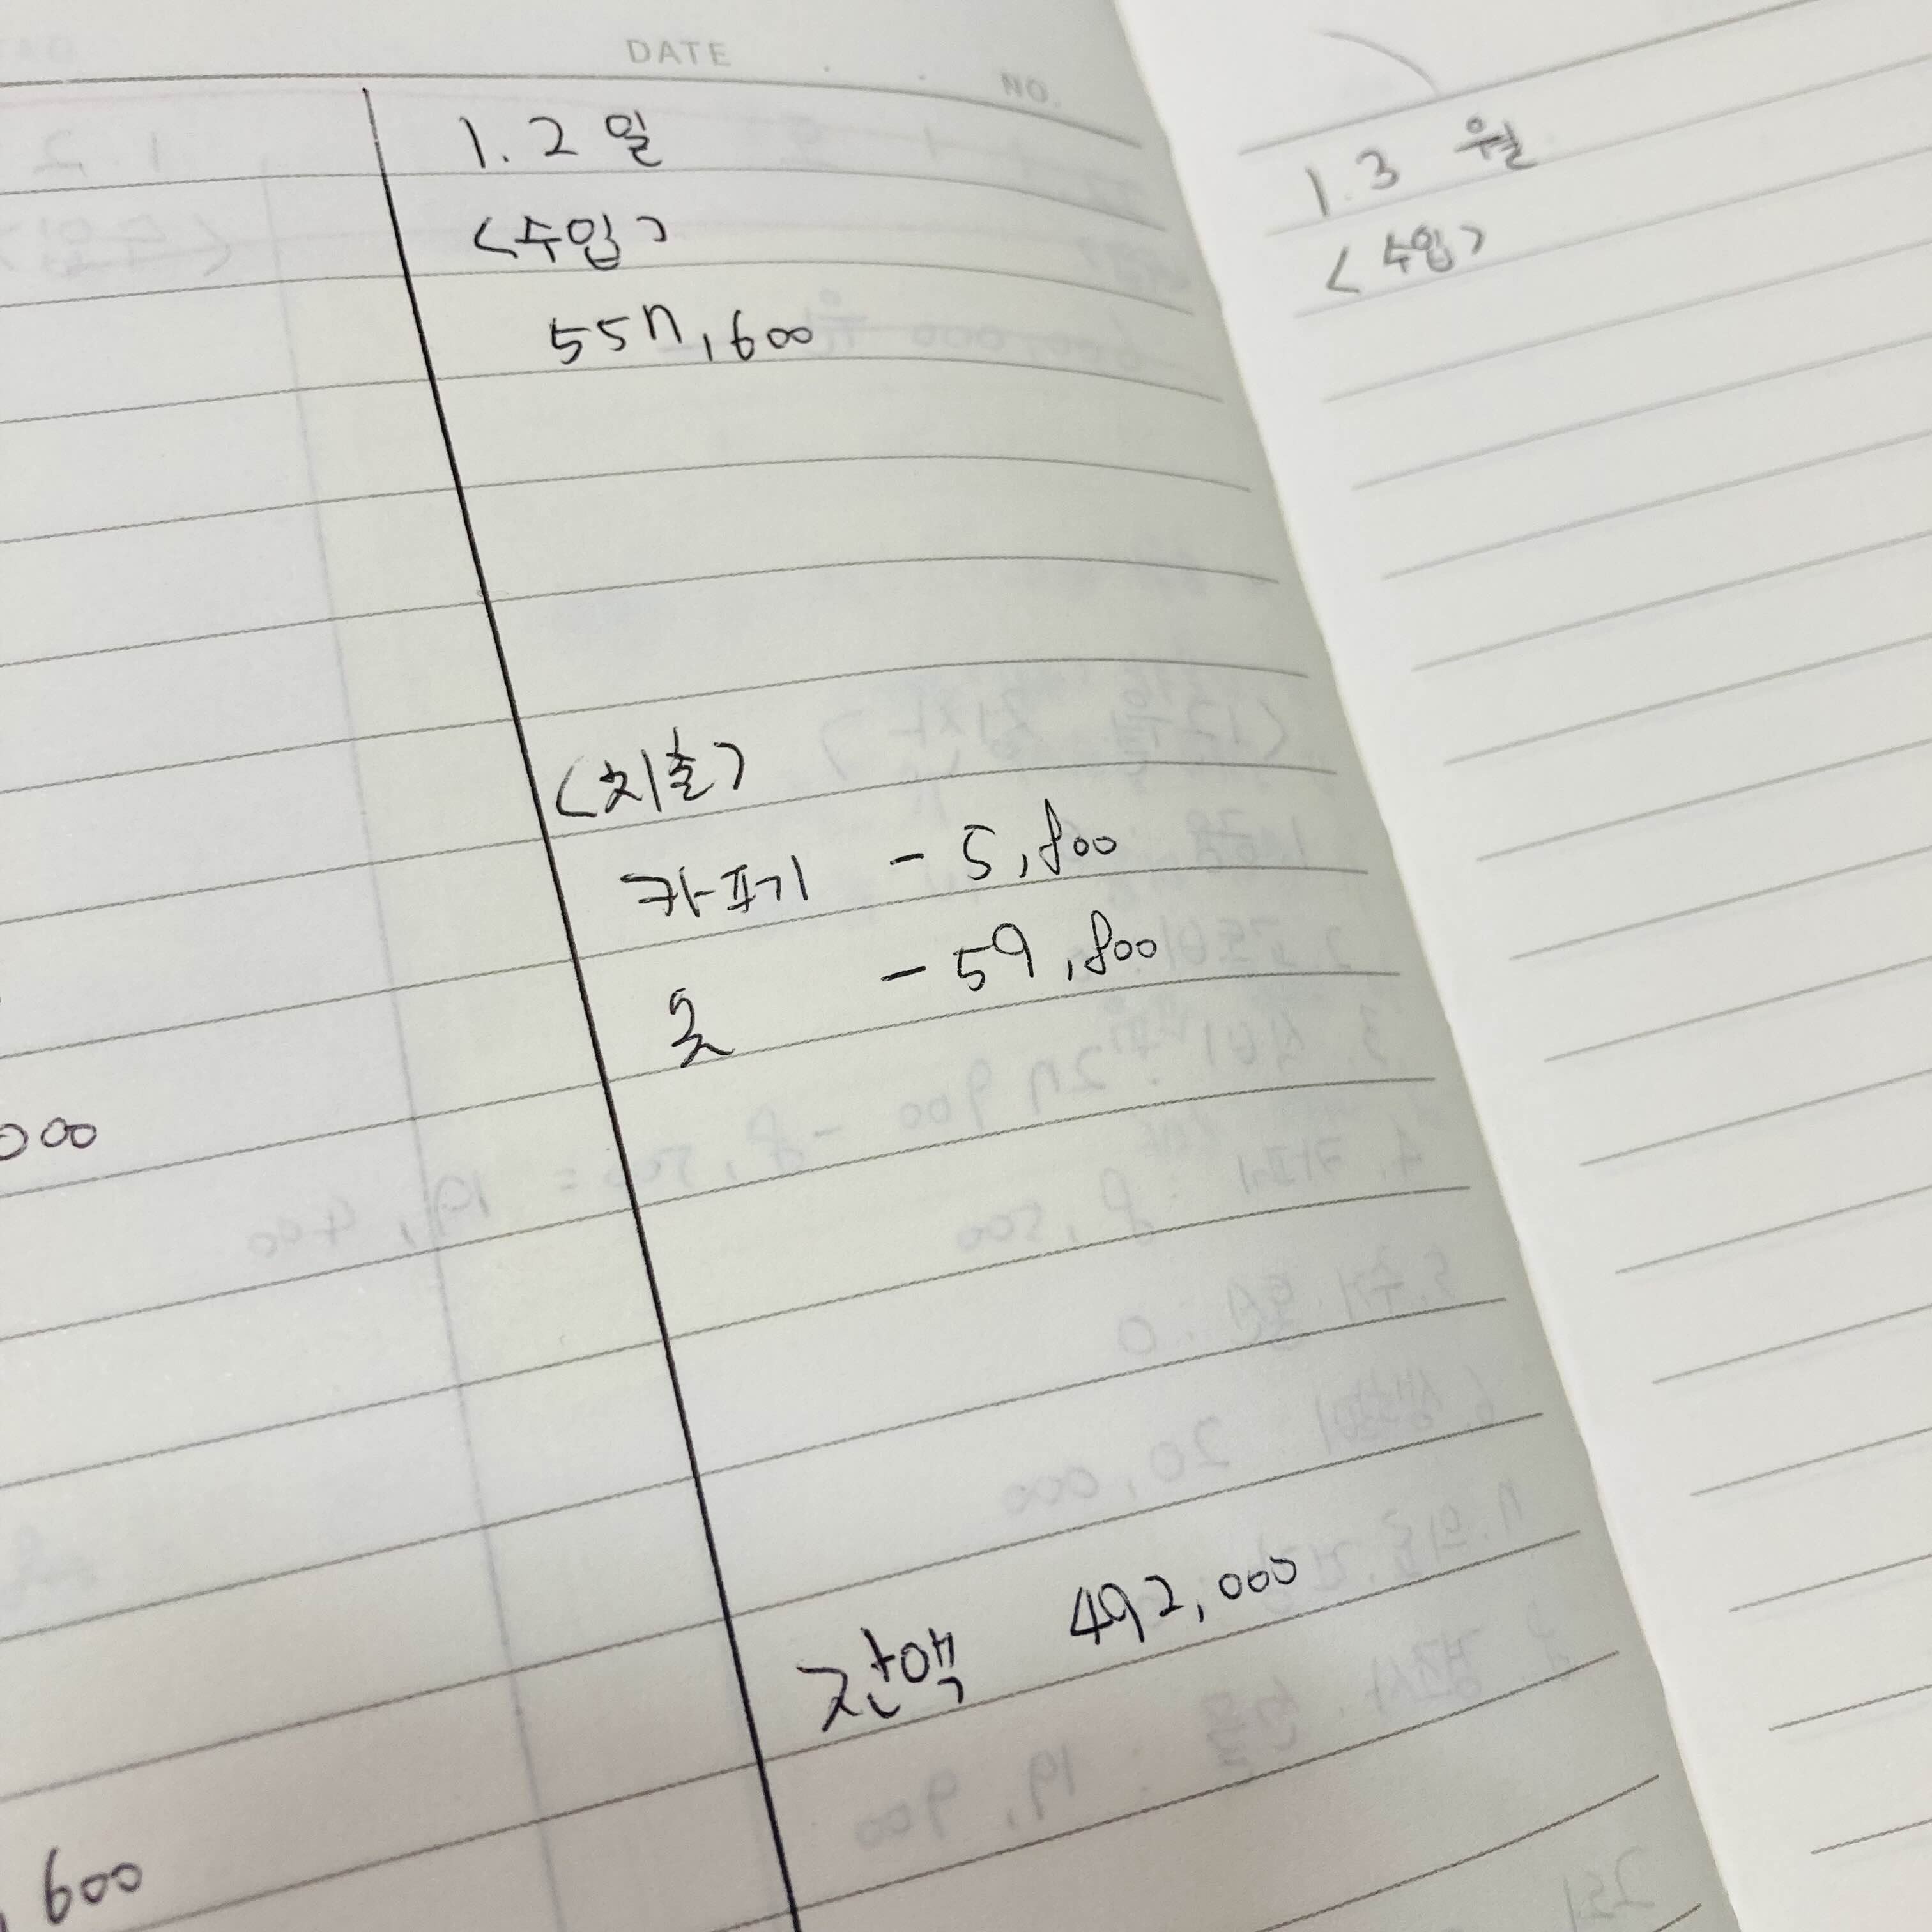 DATE . .
NO.
000
600
1.2 일
<수입>
557,600
<지출>
카페 - 5,800
옷 - 59,800
잔액 492,000
1.3 월
<수입>